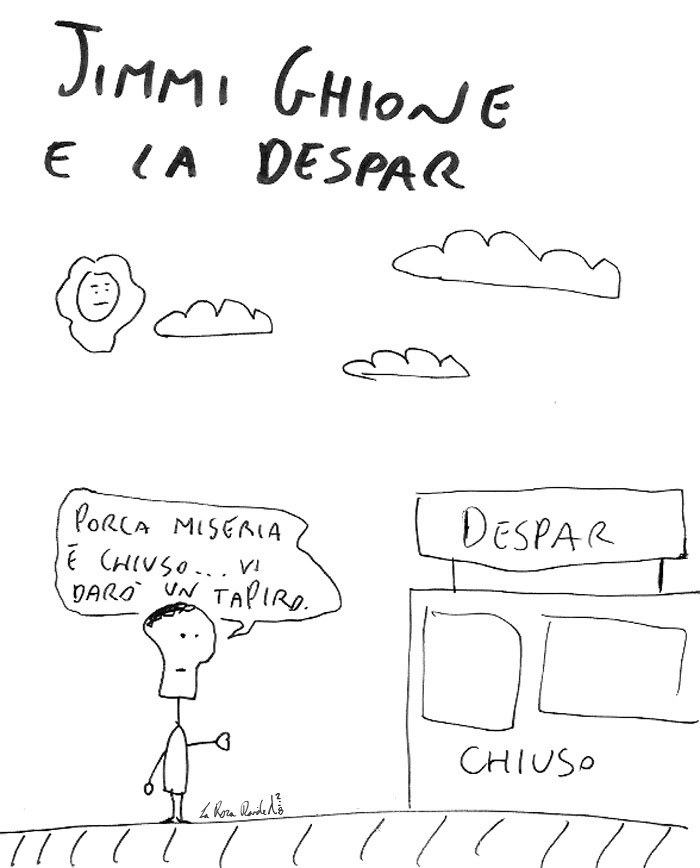 JIMMI GHIONE
E LA DESPAR
PORCA MISERIA
È CHIUSO... VI
DARÒ UN TAPIRO.
DESPAR
CHIUSO
La Rosa